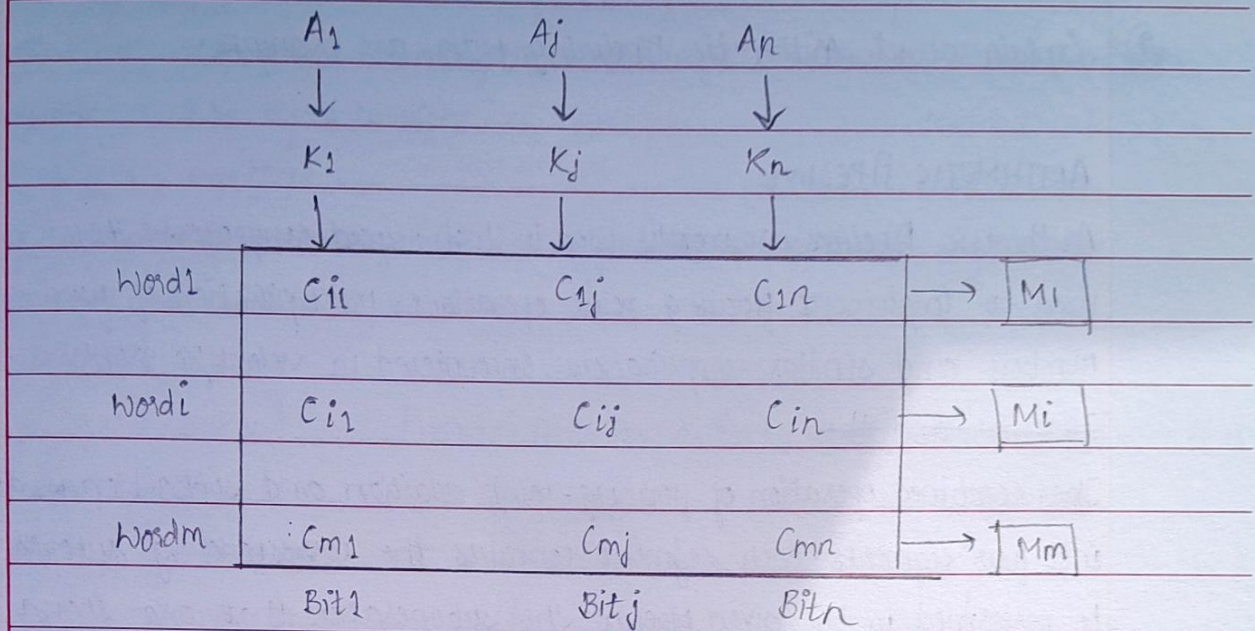 A1 Aj An
K1 Kj Kn
Word1 Ci1 C1j C1n M1
Wordi Ci1 Cij Cin Mi
Wordm Cm1 Cmj Cmn Mm
Bit1 Bitj Bitn